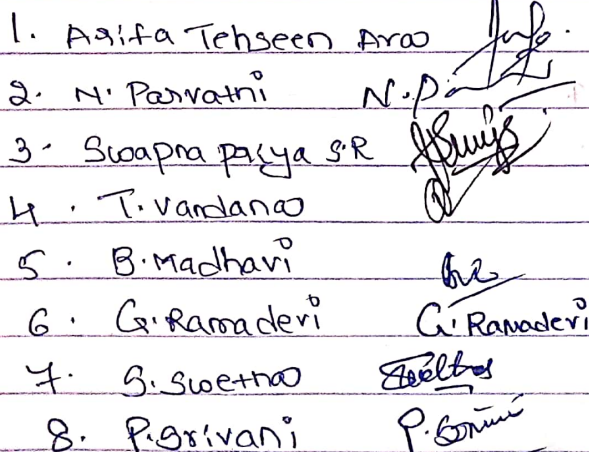 1. Asifa Tehseen Araa
2. N. Parvathi N.P.
3. Swapna priya S.R
4. T. Vandana
5. B. Madhavi
6. G. Ramadevi G. Ramadevi
7. S. Swetha Swetha
8. P. Srivani P. Srivani